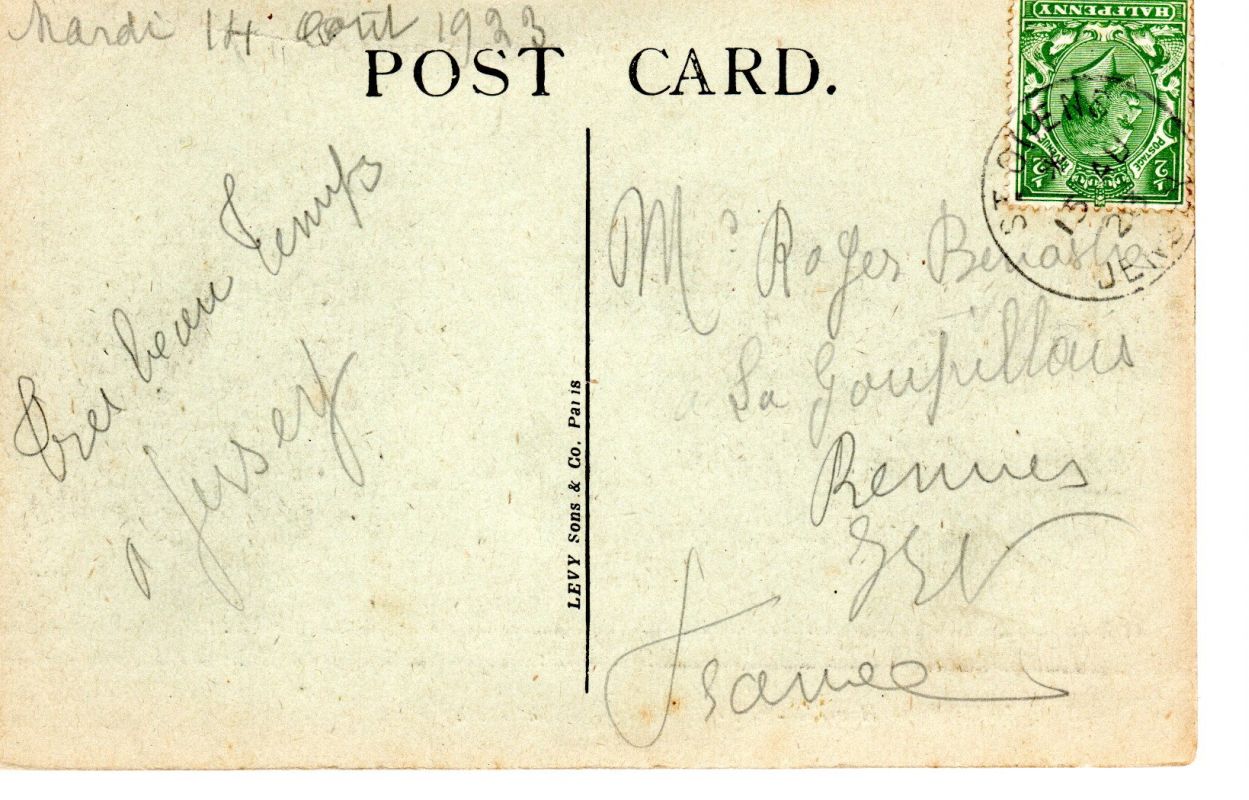 Mardi 14 août 1923
POST CARD.
Très beau temps
a Jersey
Mr Roger
La Goupillais
Rennes
I & V
France
LEVY Sons & Co. Paris
HALFPENNY
POSTAGE
REVENUE
½ ½
ST OUENS
13 AU
23
JERSEY